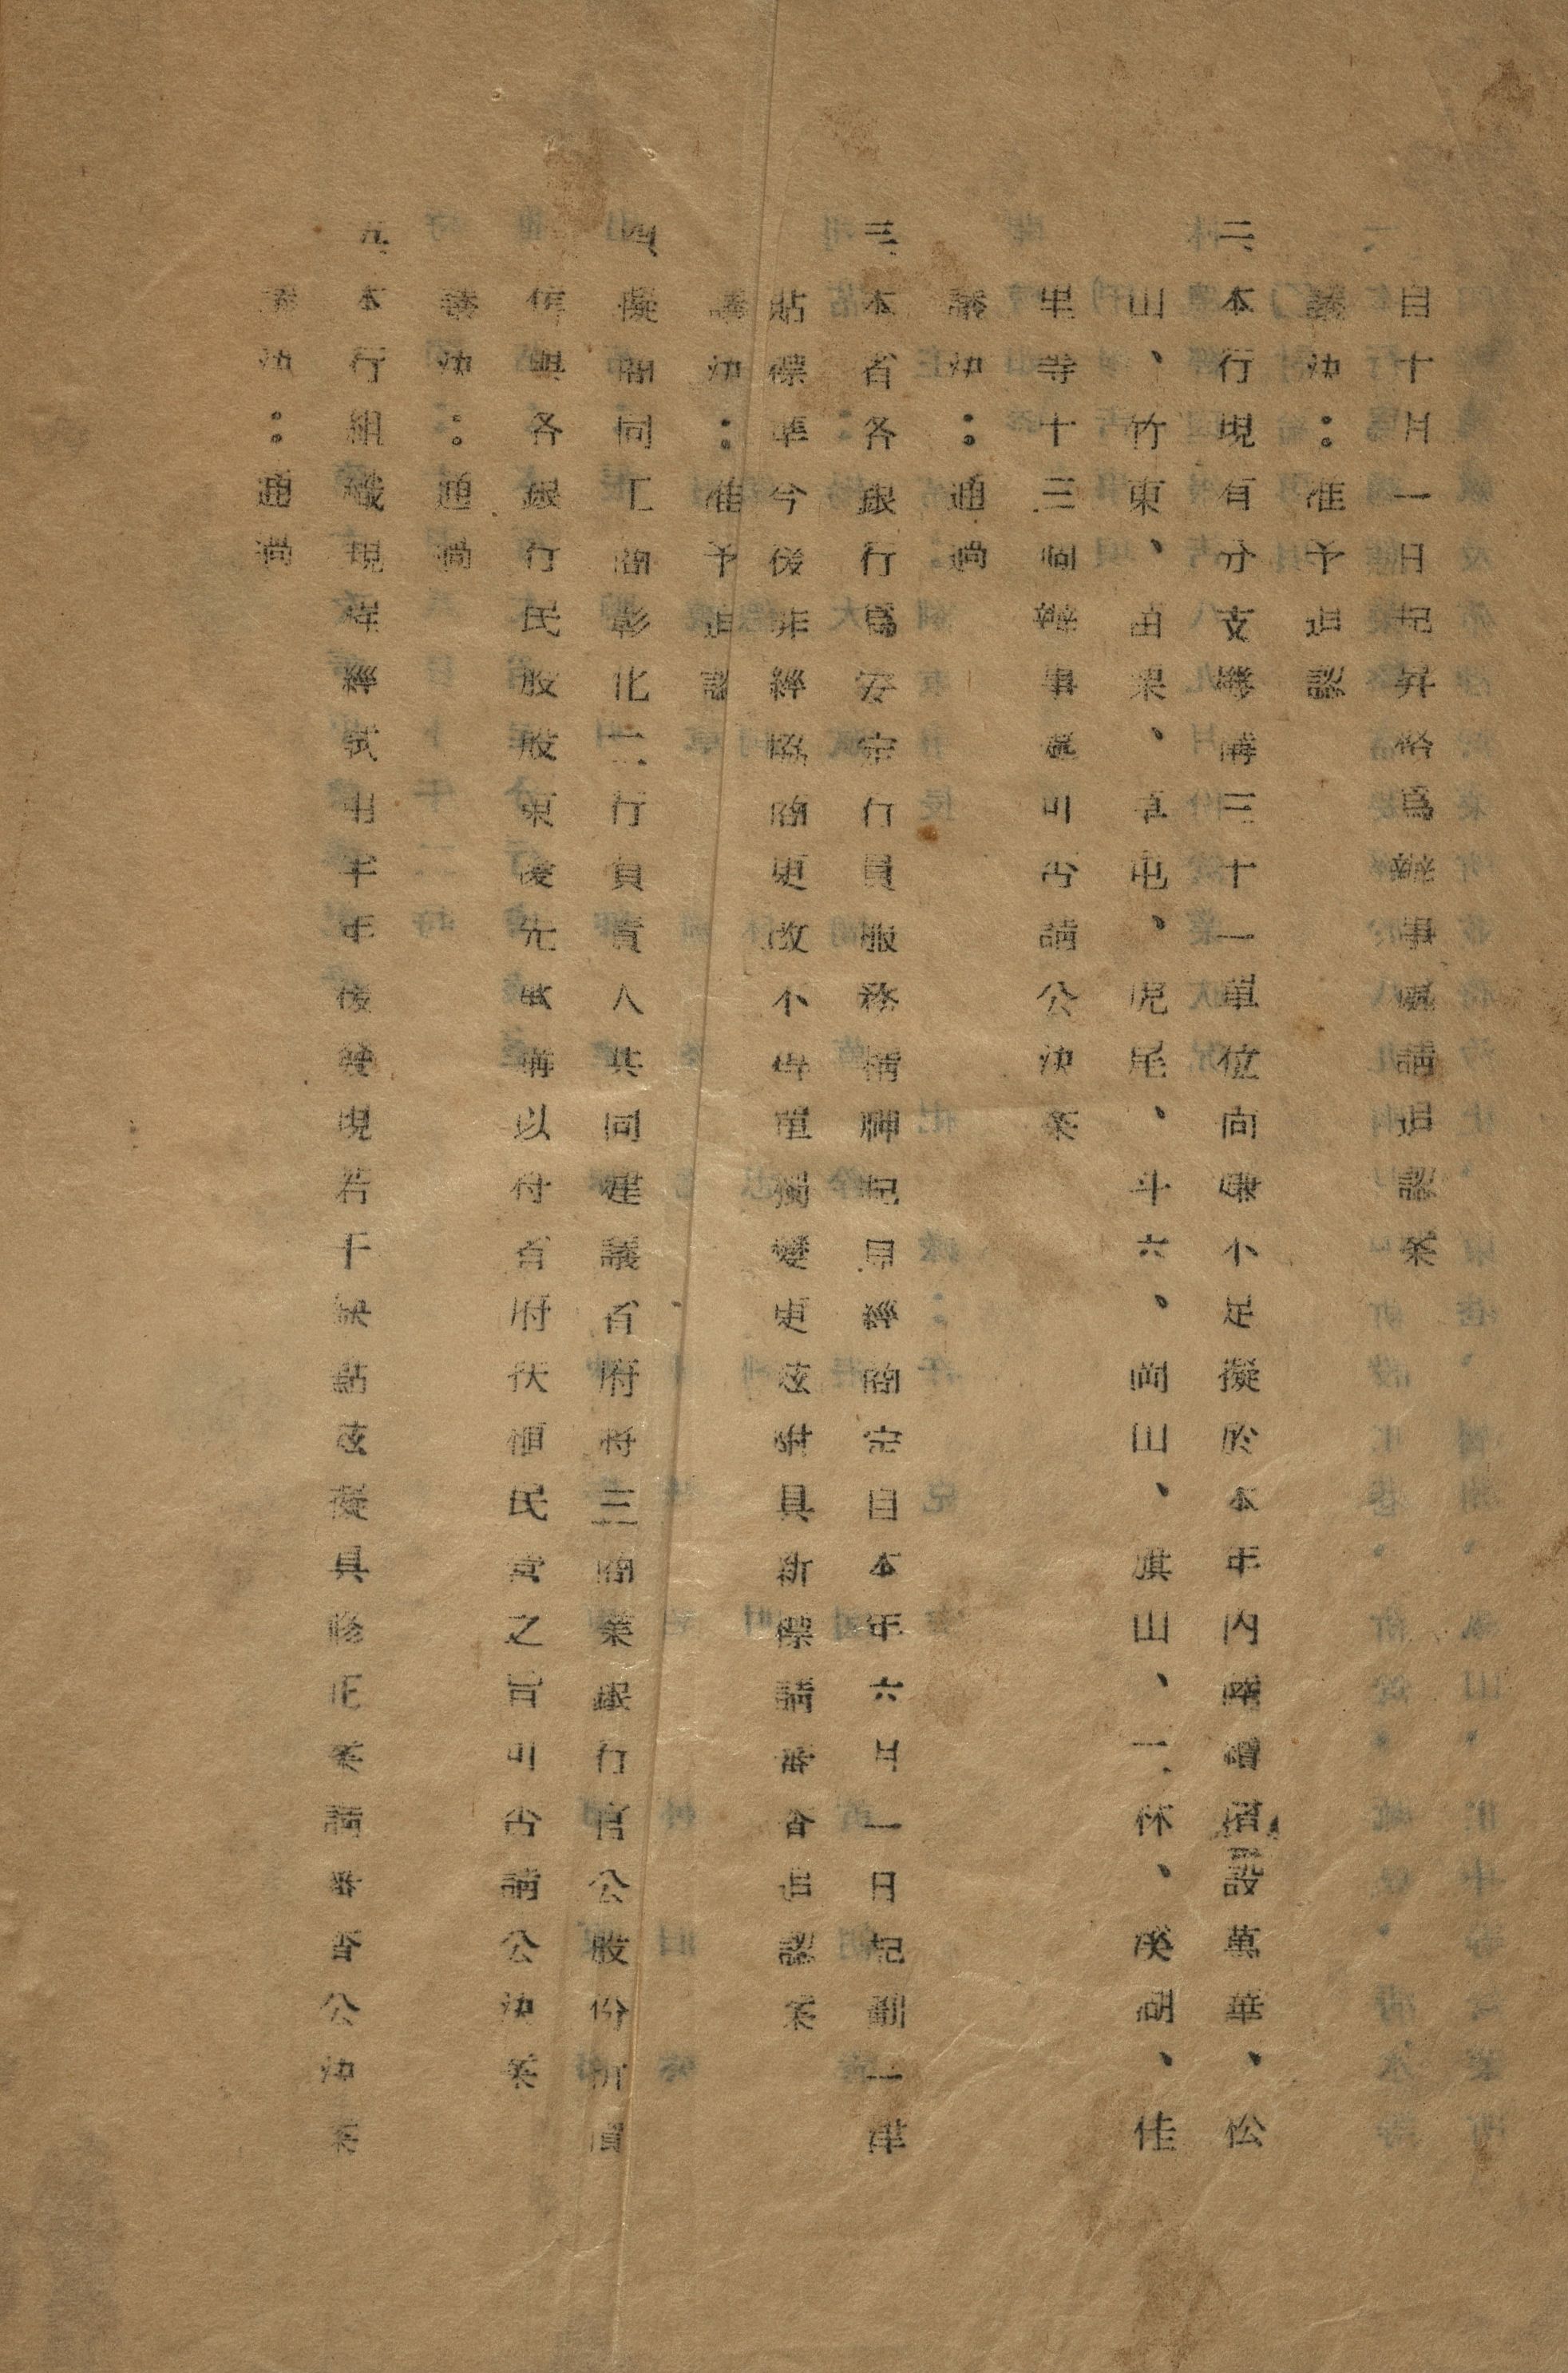 自十月一日起昇格爲辦事處請追認案
議決：准予追認
二、本行現有分支機構三十一單位向嫌不足擬於本年內陸續增設萬華、松
山、竹東、苗栗、草屯、虎尾、斗六、岡山、旗山、二林、溪湖、佳
里等十三個辦事處可否請公決案
議決：通過
三、本省各銀行爲安定行員服務精神起見經商定自本年六月一日起劃一津
貼標準今後非經協商更改不得單獨變更茲附具新標請審查追認案
議決：准予追認
四、擬商同工商彰化二行負責人共同建議省府將三商業銀行官公股份折價
讓與各銀行民股股東優先承購以符省府扶植民營之旨可否請公決案
議決：通過
五、本行組織規程經試用半年後發現若干缺點茲擬具修正案請審查公決案
議決：通過